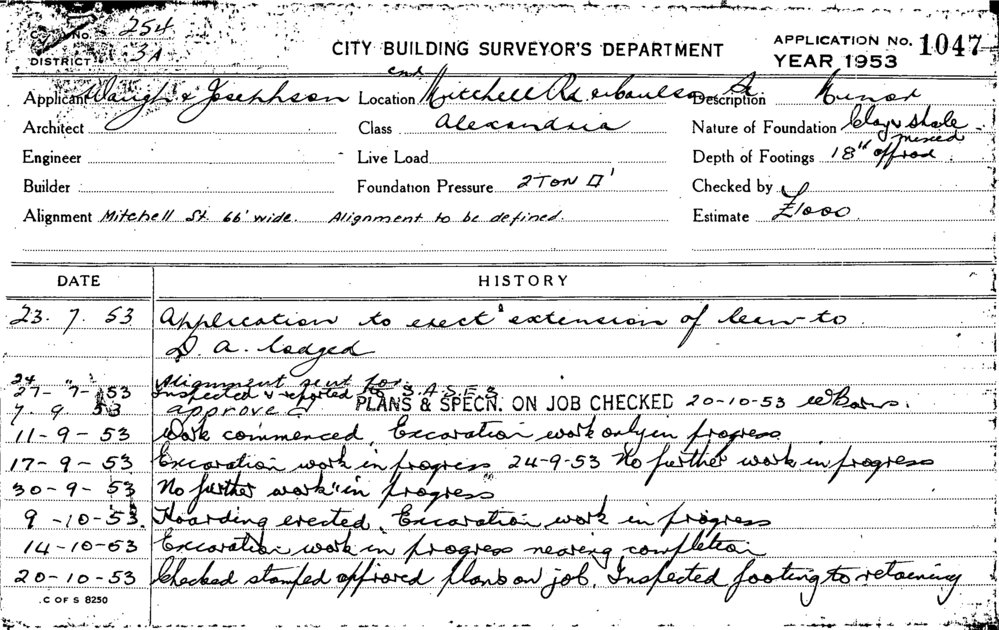 C. No. 254
DISTRICT 3A
CITY BUILDING SURVEYOR'S DEPARTMENT
APPLICATION No. 1047
YEAR 1953
Applicant Waugh & Josephson Location Mitchell Rd & Coulson St Description Minor
end
Architect Class Alexandria Nature of Foundation Clay & Shale
mixed
Engineer Live Load Depth of Footings 18" off rod
Builder Foundation Pressure 2 TON □' Checked by
Alignment Mitchell St. 66' wide. Alignment to be defined. Estimate £1000
DATE HISTORY
23. 7. 53 Application to erect extension of lean-to
D. A. lodged
24 Alignment sent for
27-7-53 Inspected & reported
7. 9. 53 approved PLANS & SPECN. ON JOB CHECKED 20-10-53
11-9-53 Work commenced, Excavation work only in progress
17-9-53 Excavation work in progress 24-9-53 No further work in progress
30-9-53 No further work in progress
9-10-53. Hoarding erected, Excavation work in progress
14-10-53 Excavation work in progress nearing completion
20-10-53 Checked stamped approved plans on job, Inspected footing to retaining
C OF S 8250